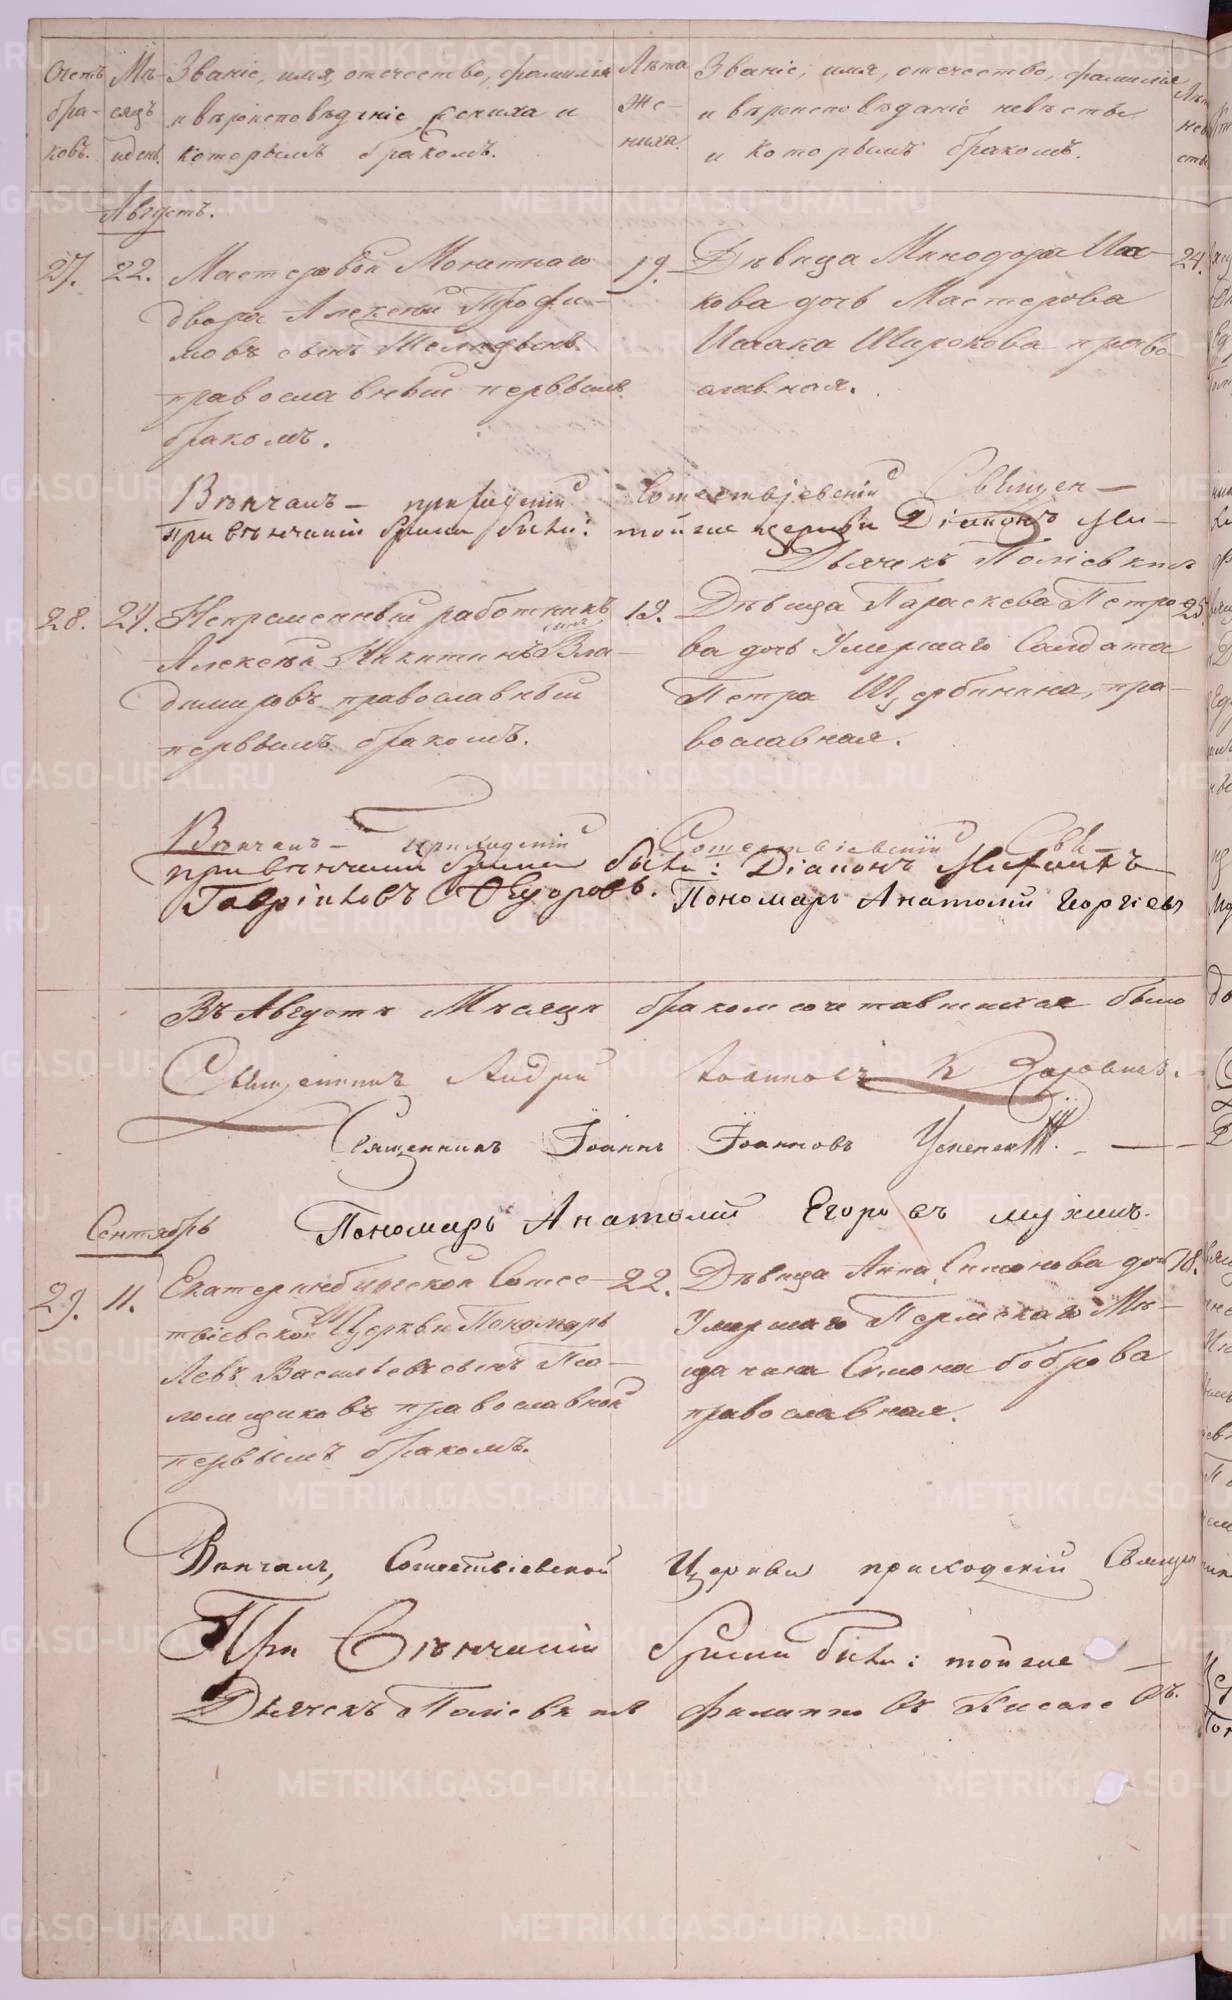 Счетъ браковъ.
Мѣсяцъ и день.
Званіе, имя, отечество, фамилія
и вѣроисповѣданіе жениха и
которымъ бракомъ.
Лѣта
же-
ниха.
Званіе, имя, отечество, фамилія
и вѣроисповѣданіе невѣсты
и которымъ бракомъ.
Августъ.
27. 22. Мастеровой Монетнаго
двора Алексѣй Трофи-
мовъ сынъ
православный первымъ
бракомъ.
19.
Дѣвица Минодора Иса-
кова дочь Мастерова
Исаака Широкова право
славная.
24.
Вѣнчалъ – приходскій Сошествіевскій Священ –
При вѣнчаніи были: тойже церкви Діаконъ Ми –
Дьячекъ Поліевктъ
28. 24. Непременный работникъ
Алексѣй Никитинъ сынъ Вла-
димировъ православный
первымъ бракомъ.
19.
Дѣвица Параскева Петро
ва дочь Умершаго Солдата
Петра Щербинина, пра-
вославная.
25
Вѣнчалъ – Приходскій Сошествіевскій Свя
при вѣнчаніи были: Діаконъ
Ѳедоровъ. Пономарь Анатолій Георгіевъ
Въ Августѣ Мѣсяцѣ бракомсочетавшихся было
Священникъ Андрей Іоанновъ
Священникъ Іоаннъ Іоанновъ Успенскій. –
Пономарь Анатолій Егоровъ Мухинъ.
Сентябрь
29. 11. Екатеринбургской Соше-
твіевской Церкви Пономарь
Левъ Васильевъ сынъ Пса-
ломщиковъ православной
первымъ бракомъ.
22.
Дѣвица Анна Симонова дочь
Умершаго Пермскаго Мѣ-
щанина Симона Боброва
православная.
18.
Вѣнчалъ, Сошествіевской Церкви приходскій Священ
При Вѣнчаніи были: тойже –
Дьячекъ Поліевктъ Филипповъ Киселевъ.
METRIKI.GASO-URAL.RU